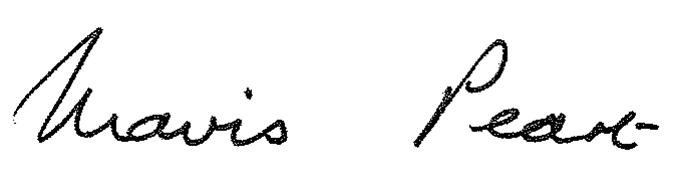 Mavis Peart